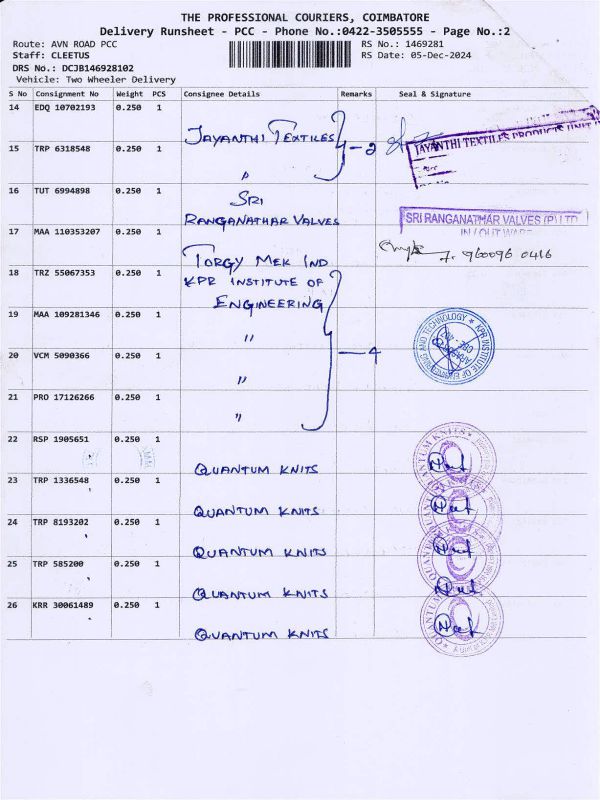 THE PROFESSIONAL COURIERS, COIMBATORE
Delivery Runsheet - PCC - Phone No.:0422-3505555 - Page No.:2
Route: AVN ROAD PCC RS No.: 1469281
Staff: CLEETUS RS Date: 05-Dec-2024
DRS No.: DCJB146928102
Vehicle: Two Wheeler Delivery
S No Consignment No Weight PCS Consignee Details Remarks Seal & Signature
14 EDQ 10702193 0.250 1
JAYANTHI TEXTILES - 2 JAYANTHI TEXTILES PRODUCTS UNIT
15 TRP 6318548 0.250 1
"
16 TUT 6994898 0.250 1 SRI
RANGANATHAR VALVES SRI RANGANATHAR VALVES (P) LTD
IN / OUT WARD
17 MAA 110353207 0.250 1
TORGY MEK IND 960096 0416
18 TRZ 55067353 0.250 1 KPR INSTITUTE OF
ENGINEERING
19 MAA 109281346 0.250 1
" KPR INSTITUTE OF ENGINEERING AND TECHNOLOGY
20 VCM 5090366 0.250 1 - 4
"
21 PRO 17126266 0.250 1
"
22 RSP 1905651 0.250 1
QUANTUM KNITS QUANTUM KNITS
23 TRP 1336548 0.250 1
QUANTUM KNITS
24 TRP 8193202 0.250 1
QUANTUM KNITS
25 TRP 585200 0.250 1
QUANTUM KNITS
26 KRR 30061489 0.250 1
QUANTUM KNITS QUANTUM KNITS